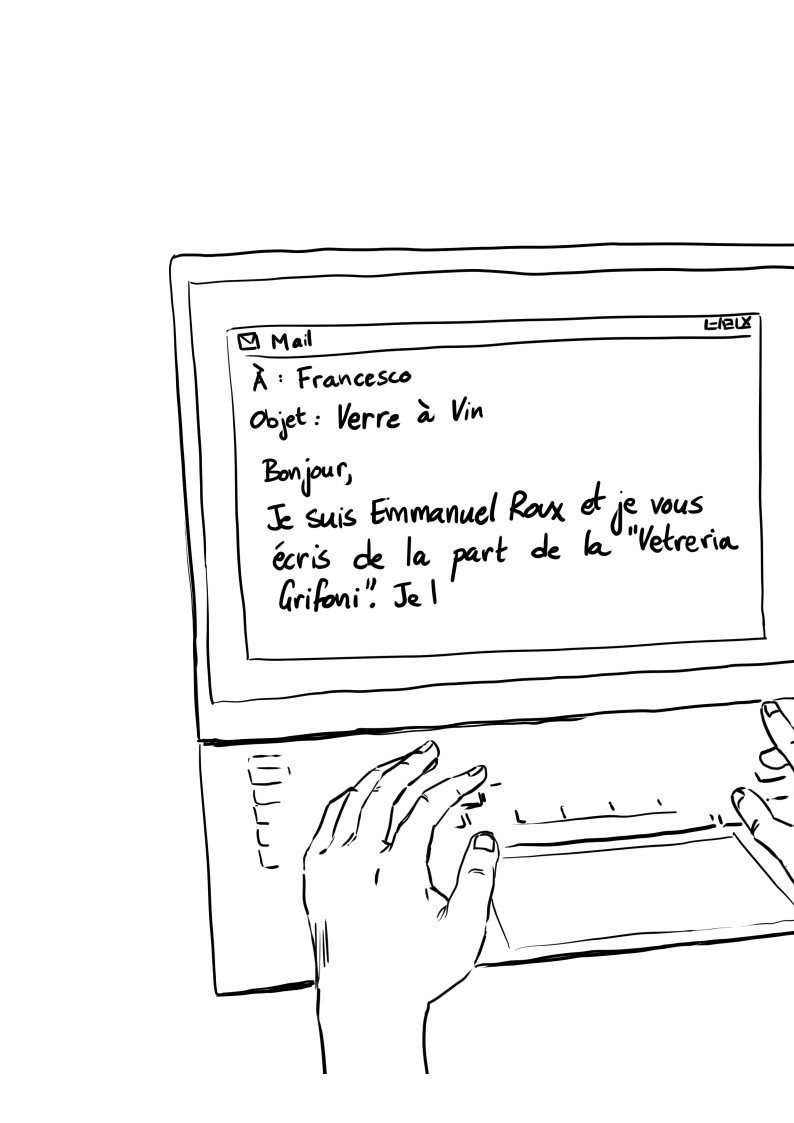 Mail
À : Francesco
Objet : Verre à Vin
Bonjour,
Je suis Emmanuel Roux et je vous
écris de la part de la "Vetreria
Grifoni". Je l